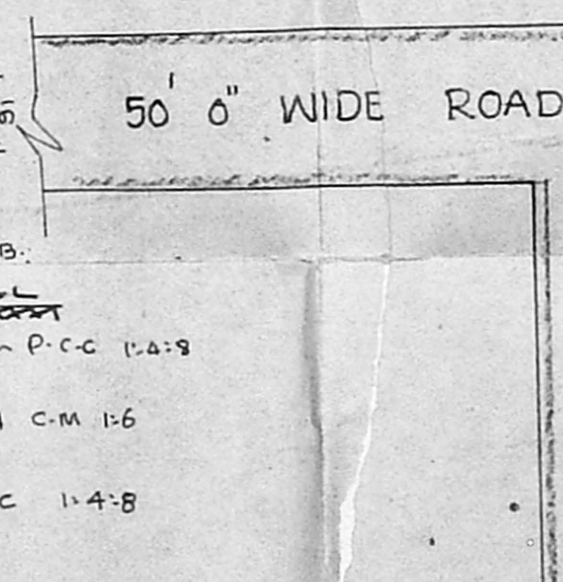 50' 0" WIDE ROAD
B.
P.C.C 1:4:8
C.M 1:6
C 1:4:8